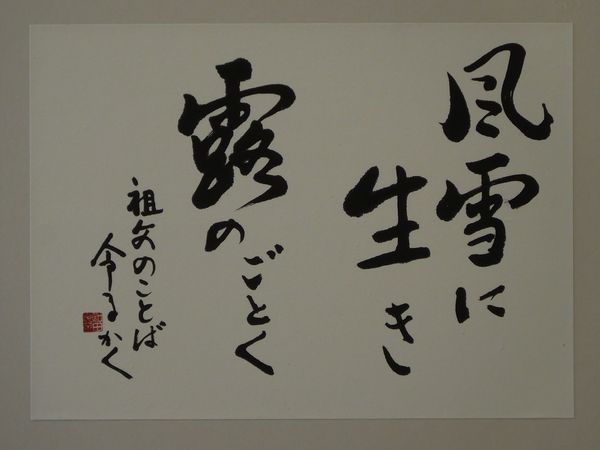 風雪に
生き
露のごとく
祖父のことば
令子かく